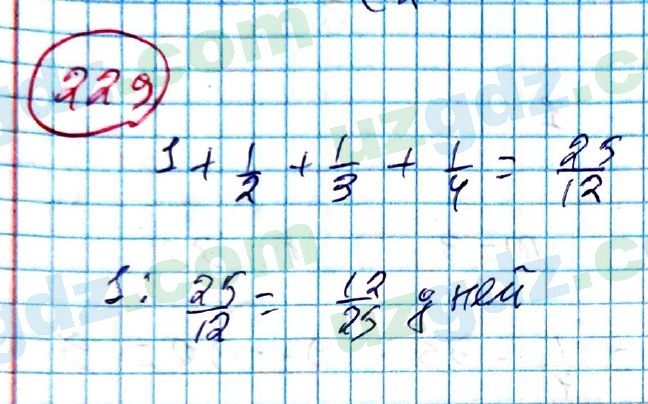 229
1 + 1/2 + 1/3 + 1/4 = 25/12
1 : 25/12 = 12/25 дней
uzgdz.com